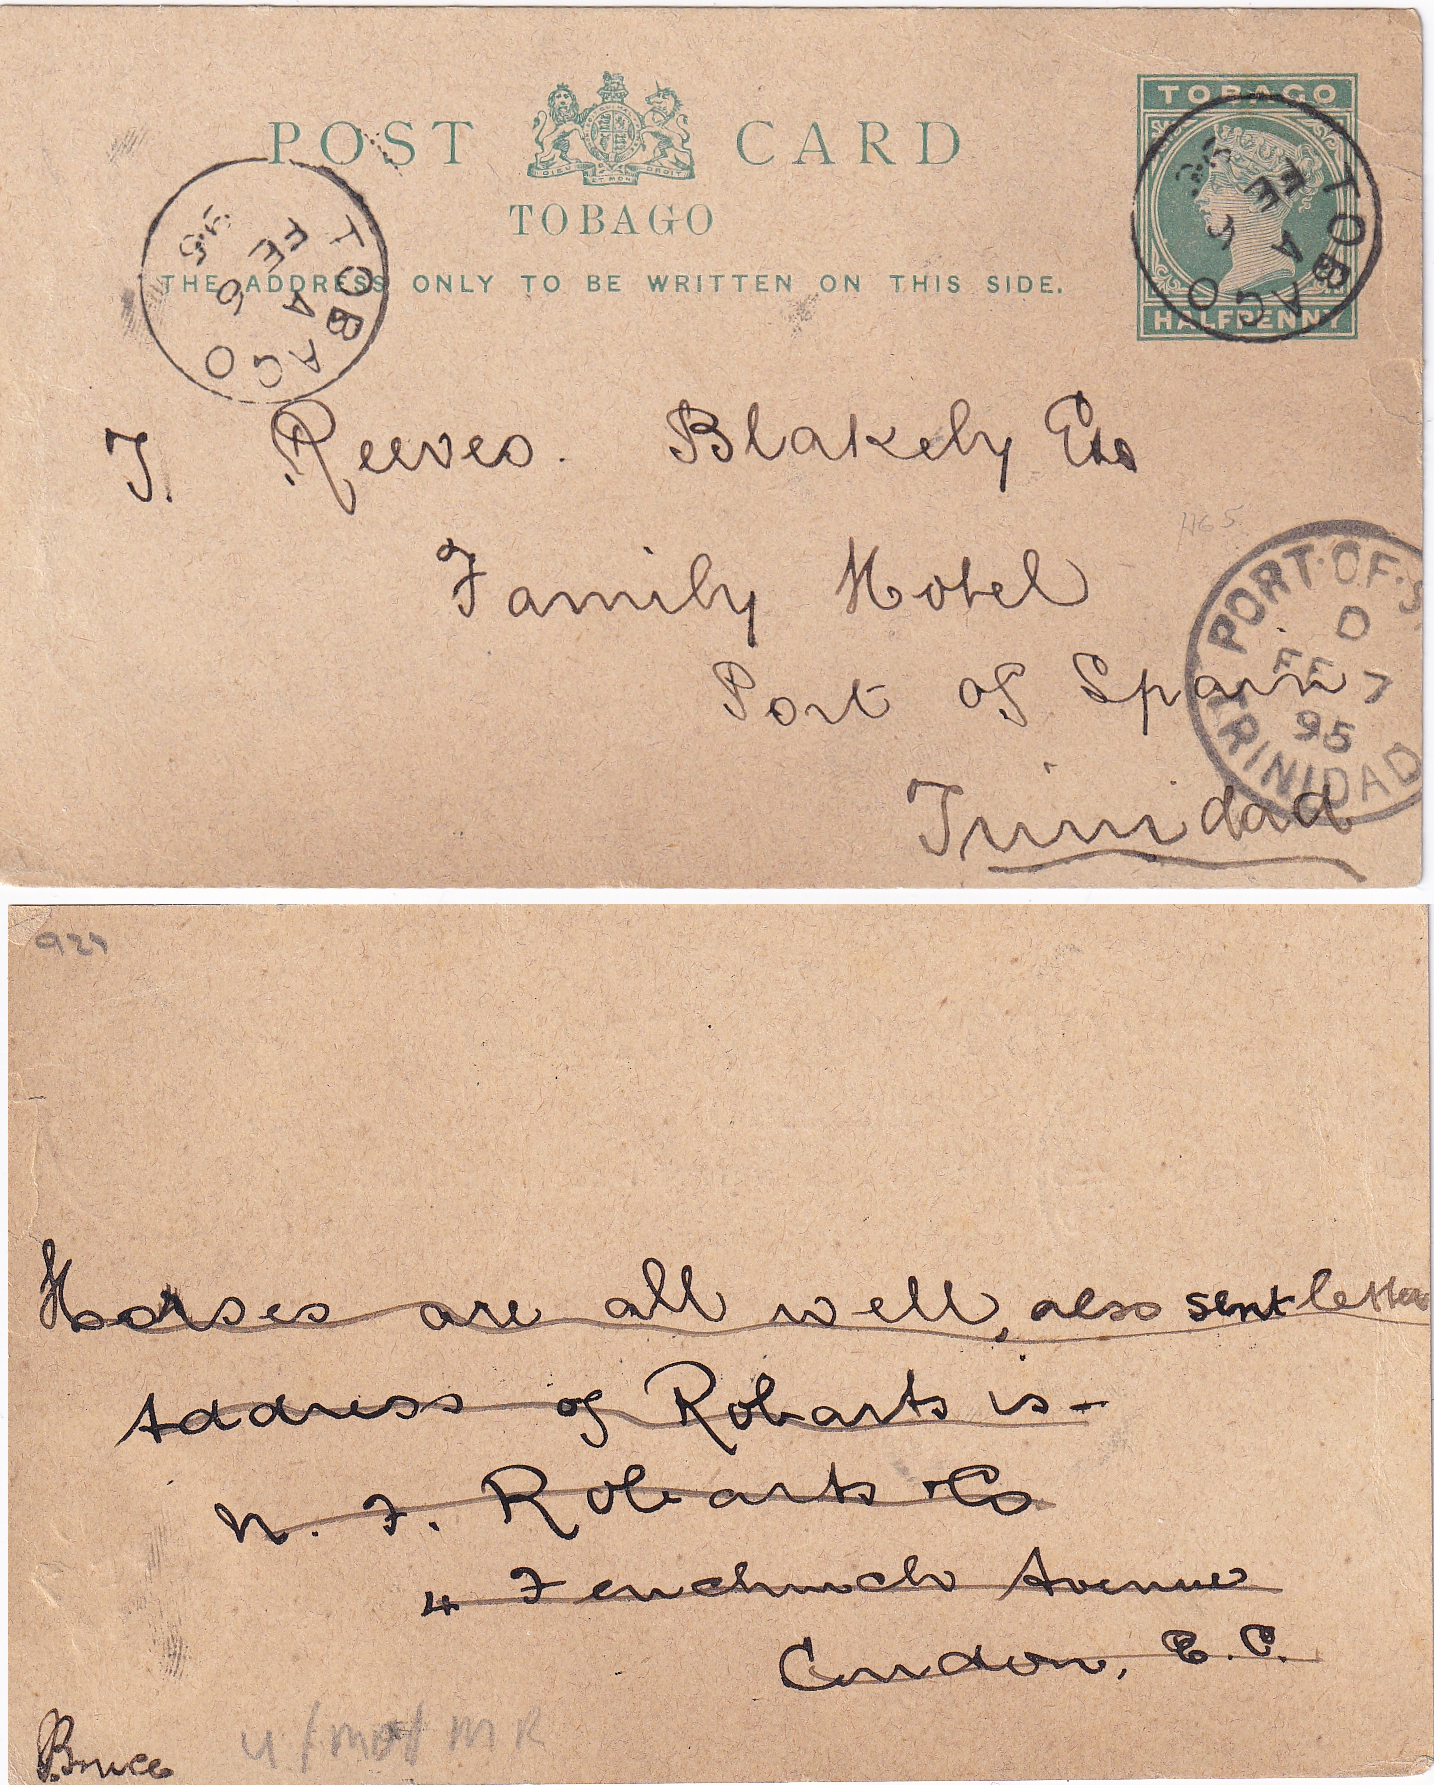 POST CARD
TOBAGO
THE ADDRESS ONLY TO BE WRITTEN ON THIS SIDE.
TOBAGO
HALFPENNY
TOBAGO
A
FE 5
95
TOBAGO
A
FE 6
95
T. Reeves. Blakely Esq
Family Hotel
Port of Spain
Trinidad
PORT·OF·S
D
FE 7
95
TRINIDAD
H&G 5
927
Horses are all well, also sent letter
Address of Robarts is-
N. F. Robarts & Co
4 Fenchurch Avenue
London, E.C.
Bruce